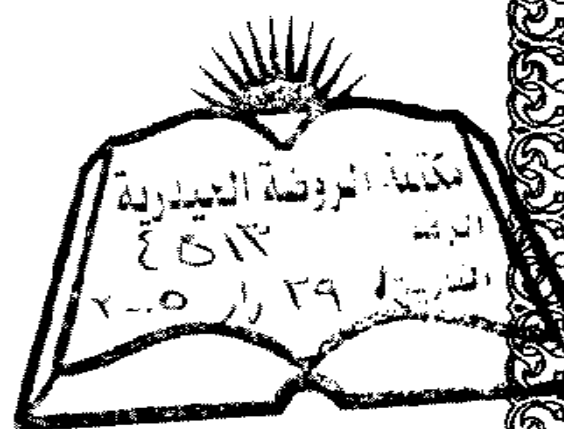 مكتبة الروضة الحيدرية
الرقم ٤٥١٣
التاريخ ٢٩ / ٢٠٠٥